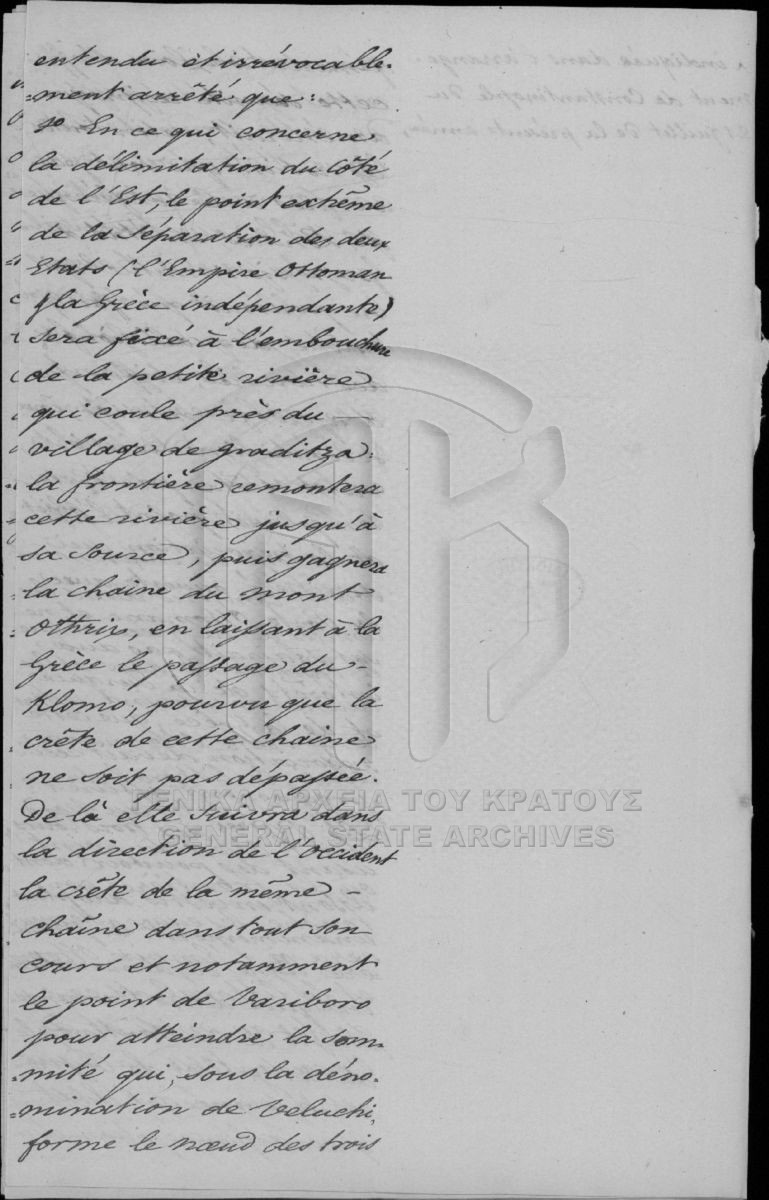 entendu et irrévocable-
ment arrêté que:
1º En ce qui concerne
la délimitation du côté
de l'Est, le point extrême
de la Séparation des deux
Etats (l'Empire Ottoman
& la Grèce indépendante)
sera fixé à l'embouchure
de la petite rivière
qui coule près du —
village de Graditza:
la frontière remontera
cette rivière jusqu'à
sa Source, puis gagnera
la chaîne du mont
Othris, en laissant à la
Grèce le passage du -
Klomo, pourvu que la
crête de cette chaine
ne soit pas dépassée.
De là elle suivra dans
la direction de l'Occident
la crête de la même -
chaîne dans tout son
cours et notamment
le point de Variboro
pour atteindre la som-
mité qui, sous la déno-
mination de Veluchi,
forme le nœud des trois
ΓΕΝΙΚΑ ΑΡΧΕΙΑ ΤΟΥ ΚΡΑΤΟΥΣ
GENERAL STATE ARCHIVES